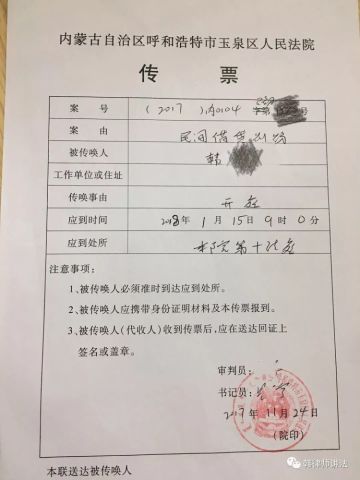 内蒙古自治区呼和浩特市玉泉区人民法院
传 票
案 号 (2017)内0104 号
案 由 民间借贷纠纷
被传唤人 韩
工作单位或住址
传唤事由 开庭
应到时间 2018年 1月 15日 9时 0分
应到处所 本院第十法庭
注意事项：
1、被传唤人必须准时到达应到处所。
2、被传唤人应携带身份证明材料及本传票报到。
3、被传唤人（代收人）收到传票后，应在送达回证上
签名或盖章。
审判员：
书记员：
2017年 11月 24日
（院印）
本联送达被传唤人
韩律师讲法